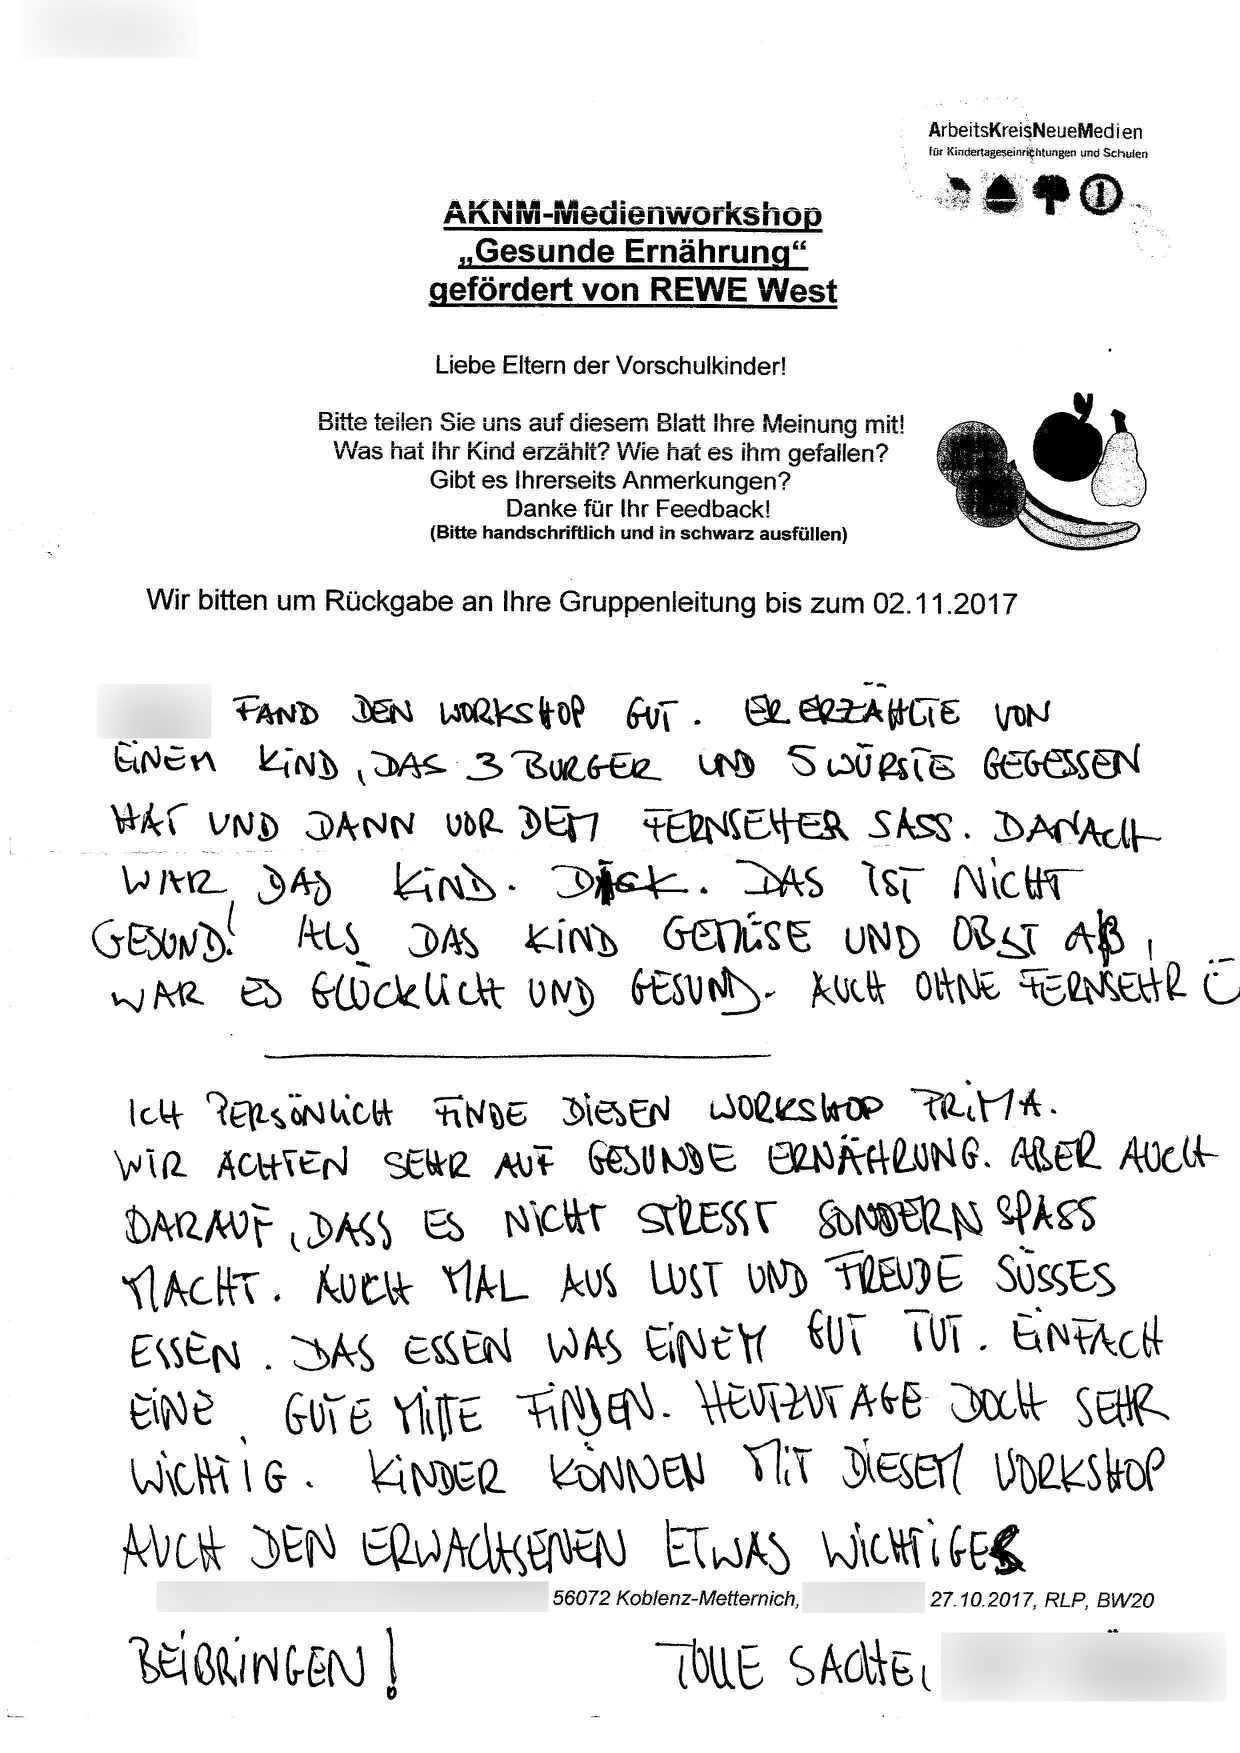 ArbeitsKreisNeueMedien
für Kindertageseinrichtungen und Schulen
AKNM-Medienworkshop
„Gesunde Ernährung“
gefördert von REWE West
Liebe Eltern der Vorschulkinder!
Bitte teilen Sie uns auf diesem Blatt Ihre Meinung mit!
Was hat Ihr Kind erzählt? Wie hat es ihm gefallen?
Gibt es Ihrerseits Anmerkungen?
Danke für Ihr Feedback!
(Bitte handschriftlich und in schwarz ausfüllen)
Wir bitten um Rückgabe an Ihre Gruppenleitung bis zum 02.11.2017
FAND DEN WORKSHOP GUT. ER ERZÄHLTE VON
EINEM KIND, DAS 3 BURGER UND 5 WÜRSTE GEGESSEN
HAT UND DANN VOR DEM FERNSEHER SASS. DANACH
WAR DAS KIND. DICK. DAS IST NICHT
GESUND! ALS DAS KIND GEMÜSE UND OBST Aß,
WAR ES GLÜCKLICH UND GESUND. AUCH OHNE FERNSEHR Ü
ICH PERSÖNLICH FINDE DIESEN WORKSHOP PRIMA.
WIR ACHTEN SEHR AUF GESUNDE ERNÄHRUNG. ABER AUCH
DARAUF, DASS ES NICHT STRESST SONDERN SPASS
MACHT. AUCH MAL AUS LUST UND FREUDE SÜSSES
ESSEN. DAS ESSEN WAS EINEM GUT TUT. EINFACH
EINE GUTE MITTE FINDEN. HEUTZUTAGE DOCH SEHR
WICHTIG. KINDER KÖNNEN MIT DIESEM WORKSHOP
AUCH DEN ERWACHSENEN ETWAS WICHTIGES
56072 Koblenz-Metternich, 27.10.2017, RLP, BW20
BEIBRINGEN! TOLLE SACHE,